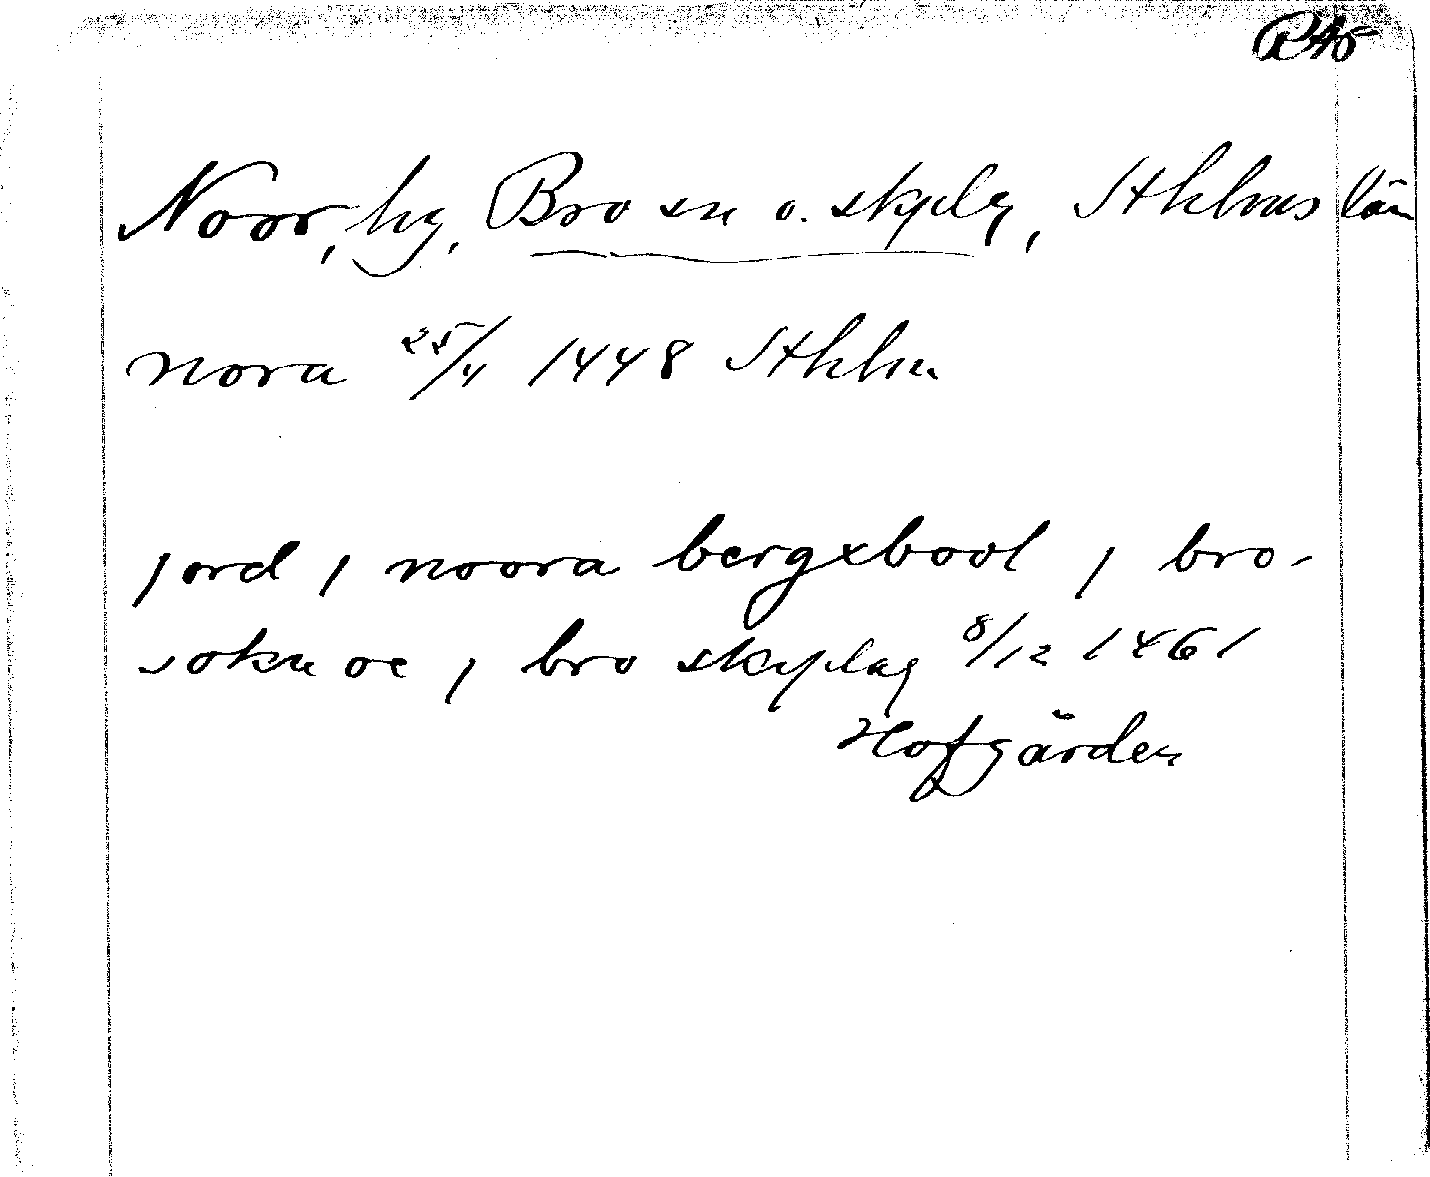 RAö
Noor, by, Bro sn o. skplg, Sthlms län
nora 25/4 1448 Sthlm
jord j noora bergxbool j bro-
sokn oc j bro skyplag 8/12 1461
Hofgården